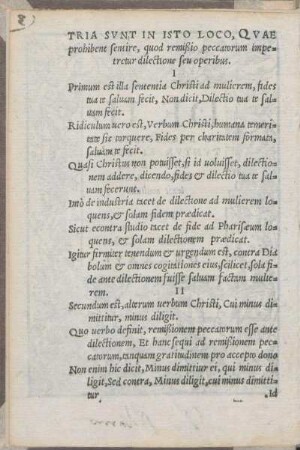 TRIA SVNT IN ISTO LOCO, QVAE
prohibent sentire, quod remissio peccatorum impe-
tretur dilectione seu operibus.
I
Primum est illa sententia Christi ad mulierem, fides
tua te saluam fecit, Non dicit, Dilectio tua te sal-
uam fecit.
Ridiculum uero est, Verbum Christi, humana temeri-
tate sic torquere, Fides per charitatem formata,
saluam te fecit.
Quasi Christus non potuisset, si id uoluisset, dilectio-
nem addere, dicendo, fides & dilectio tua te sal-
uam fecerunt.
Imò de industria tacet de dilectione ad mulierem lo
quens, & solam fidem prædicat.
Sicut econtra studio tacet de fide ad Pharisæum lo
quens, & solam dilectionem prædicat.
Igitur firmiter tenendum & urgendum est, contra Dia
bolum & omnes cogitationes eius, scilicet, sola fi-
de ante dilectionem fuisse saluam factam mulie-
rem.
II
Secundum est, alterum uerbum Christi, Cui minus di-
mittitur, minus diligit.
Quo uerbo definit, remissionem peccatorum esse ante
dilectionem, Et hanc sequi ad remissionem pec-
catorum, tanquam gratitudinem pro accepto dono
Non enim hic dicit, Minus dimittitur ei, qui minus di-
ligit, Sed contra, Minus diligit, cui minus dimitti-
tur
Id